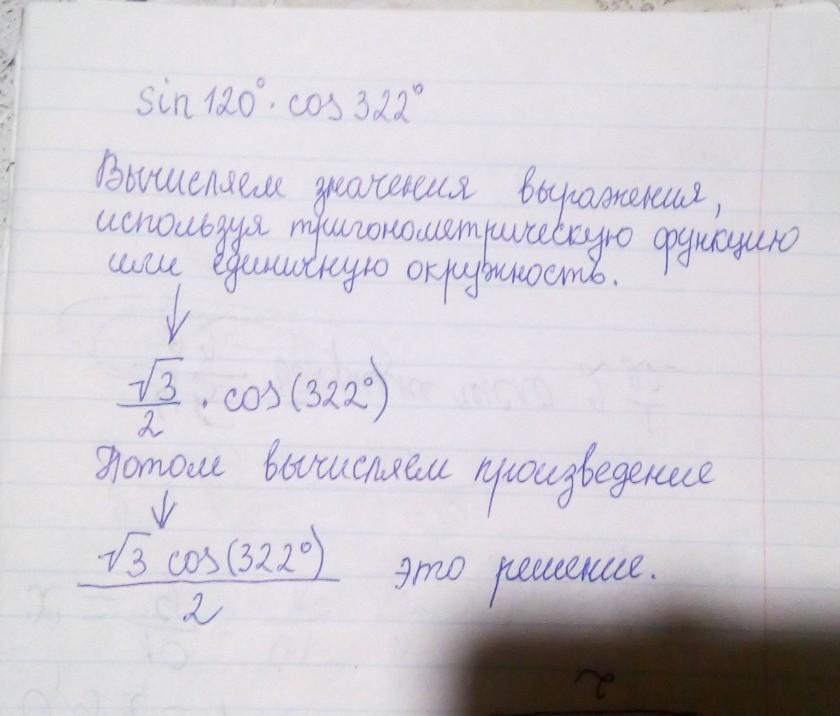 sin 120° · cos 322°
Вычисляем значения выражения,
используя тригонометрическую функцию
или единичную окружность.
↓
√3/2 · cos(322°)
Потом вычисляем произведение
↓
√3 cos(322°)/2 это решение.